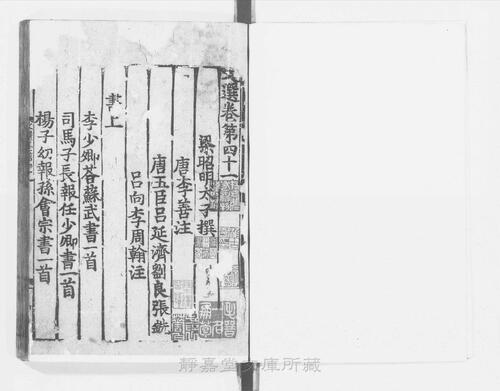 文選卷第四十一
梁昭明太子撰
唐李善注
唐五臣呂延濟劉良張銑
呂向李周翰注
書上
李少卿荅蘇武書一首
司馬子長報任少卿書一首
楊子幼報孫會宗書一首
靜嘉堂文庫所藏